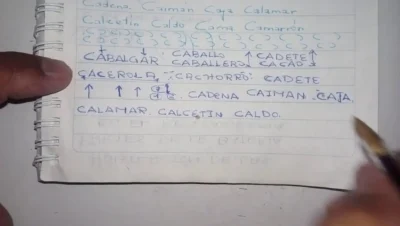 Cadena Caiman Caja Calamar
Calcetín Caldo Cama Camarón
CABALLO CADETE
CABALGAR CABALLERO CACAO
CACEROLA, CACHORRO CADETE
CADENA CAIMAN CAJA,
CALAMAR CALCETIN CALDO.